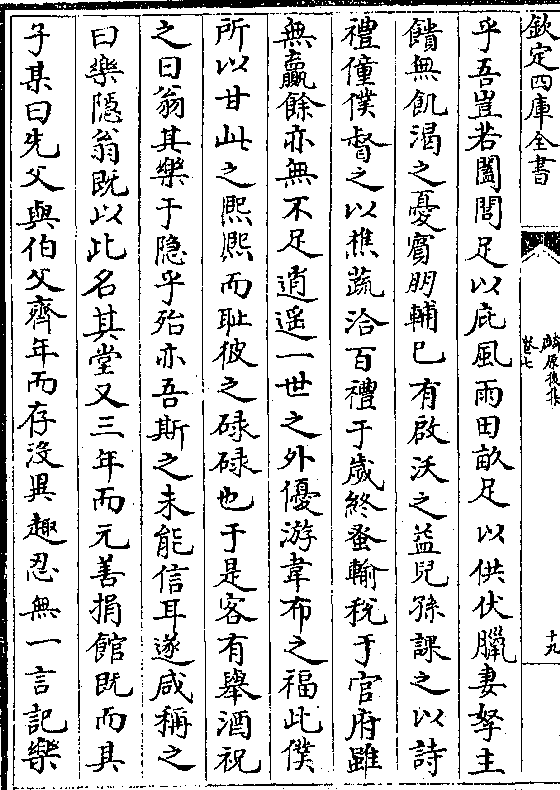 欽定四庫全書
麟原後集
卷七
十九
乎吾豈若闔閭足以庇風雨田畝足以供伏臘妻孥主
饋無飢渴之憂賓朋輔已有啟沃之益兒孫課之以詩
禮僮僕督之以樵蔬洽百禮于歲終蚤輸稅于官府雖
無贏餘亦無不足逍遥一世之外優游韋布之福此僕
所以甘此之熙熙而耻彼之碌碌也于是客有舉酒祝
之曰翁其樂于隠乎殆亦吾斯之未能信耳遂咸稱之
曰樂隠翁既以此名其堂又三年而元善捐館既而其
子某曰先父與伯父齊年而存沒異趣忍無一言記樂